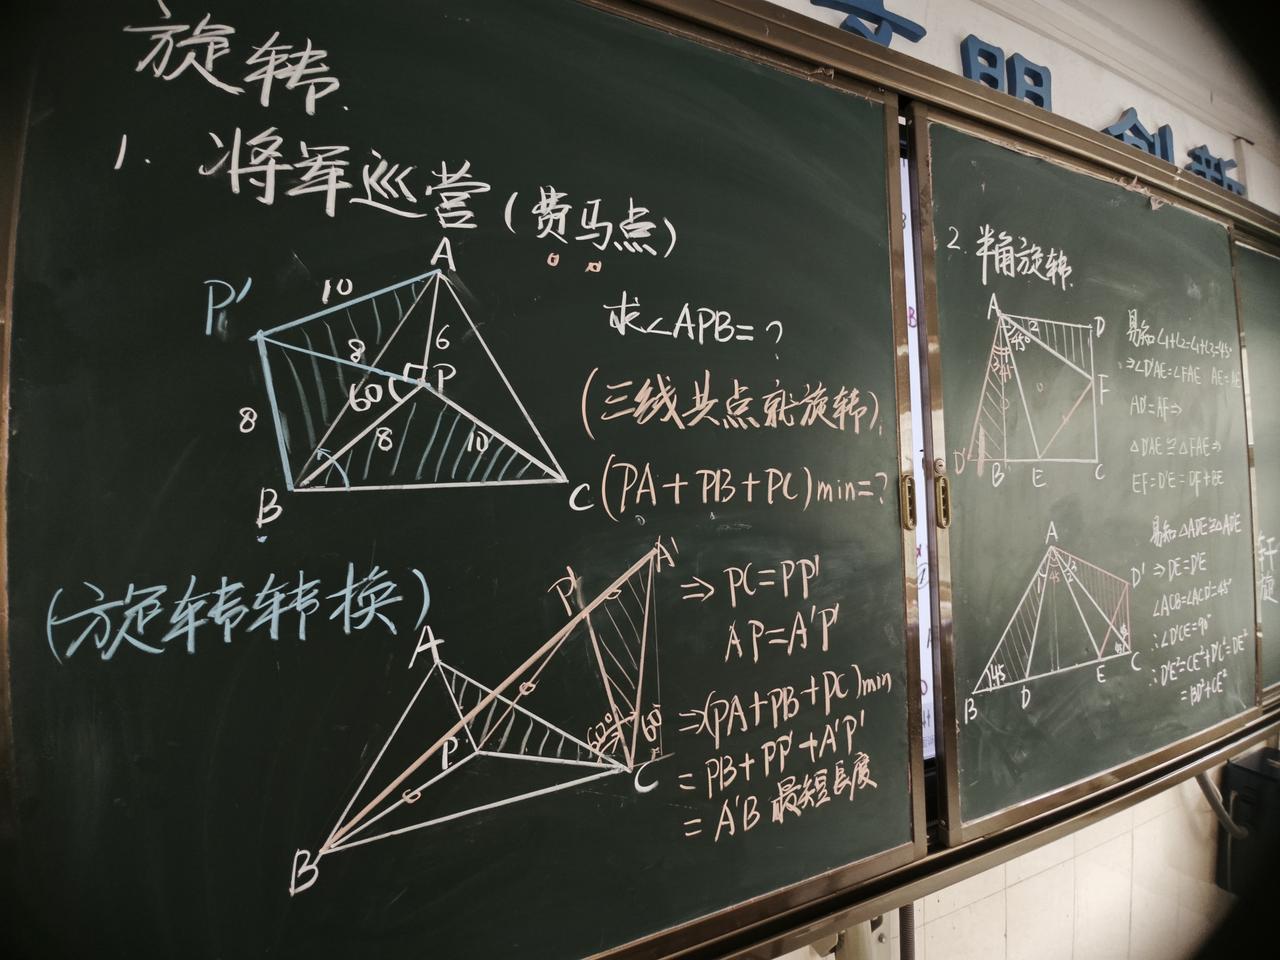 文明 创新
旋转.
1. 将军巡营(费马点)
A
P'
10
6
8
60
P
8
8
10
B
C
求∠APB=?
(三线共点就旋转)
(PA+PB+PC)min=?
(旋转转换)
A'
P'
A
P
60°
60
C
B
⇒ PC=PP'
AP=A'P'
⇒(PA+PB+PC)min
= PB+PP'+A'P'
= A'B 最短长度
2. 半角旋转
A
D
45°
2
3
F
D'
B
E
C
易知∠1+∠2=∠1+∠3=45°
⇒∠D'AE=∠FAE AE=AE
AD'=AF⇒
△D'AE≅△FAE⇒
EF=D'E=DF+BE
A
45
2
D'
45
B
D
E
C
易知△ADE≅△AD'E
⇒DE=D'E
∠ACB=∠ACD'=45°
∴∠D'CE=90°
∴D'E²=CE²+D'C²=DE²
=BD²+CE²
旋